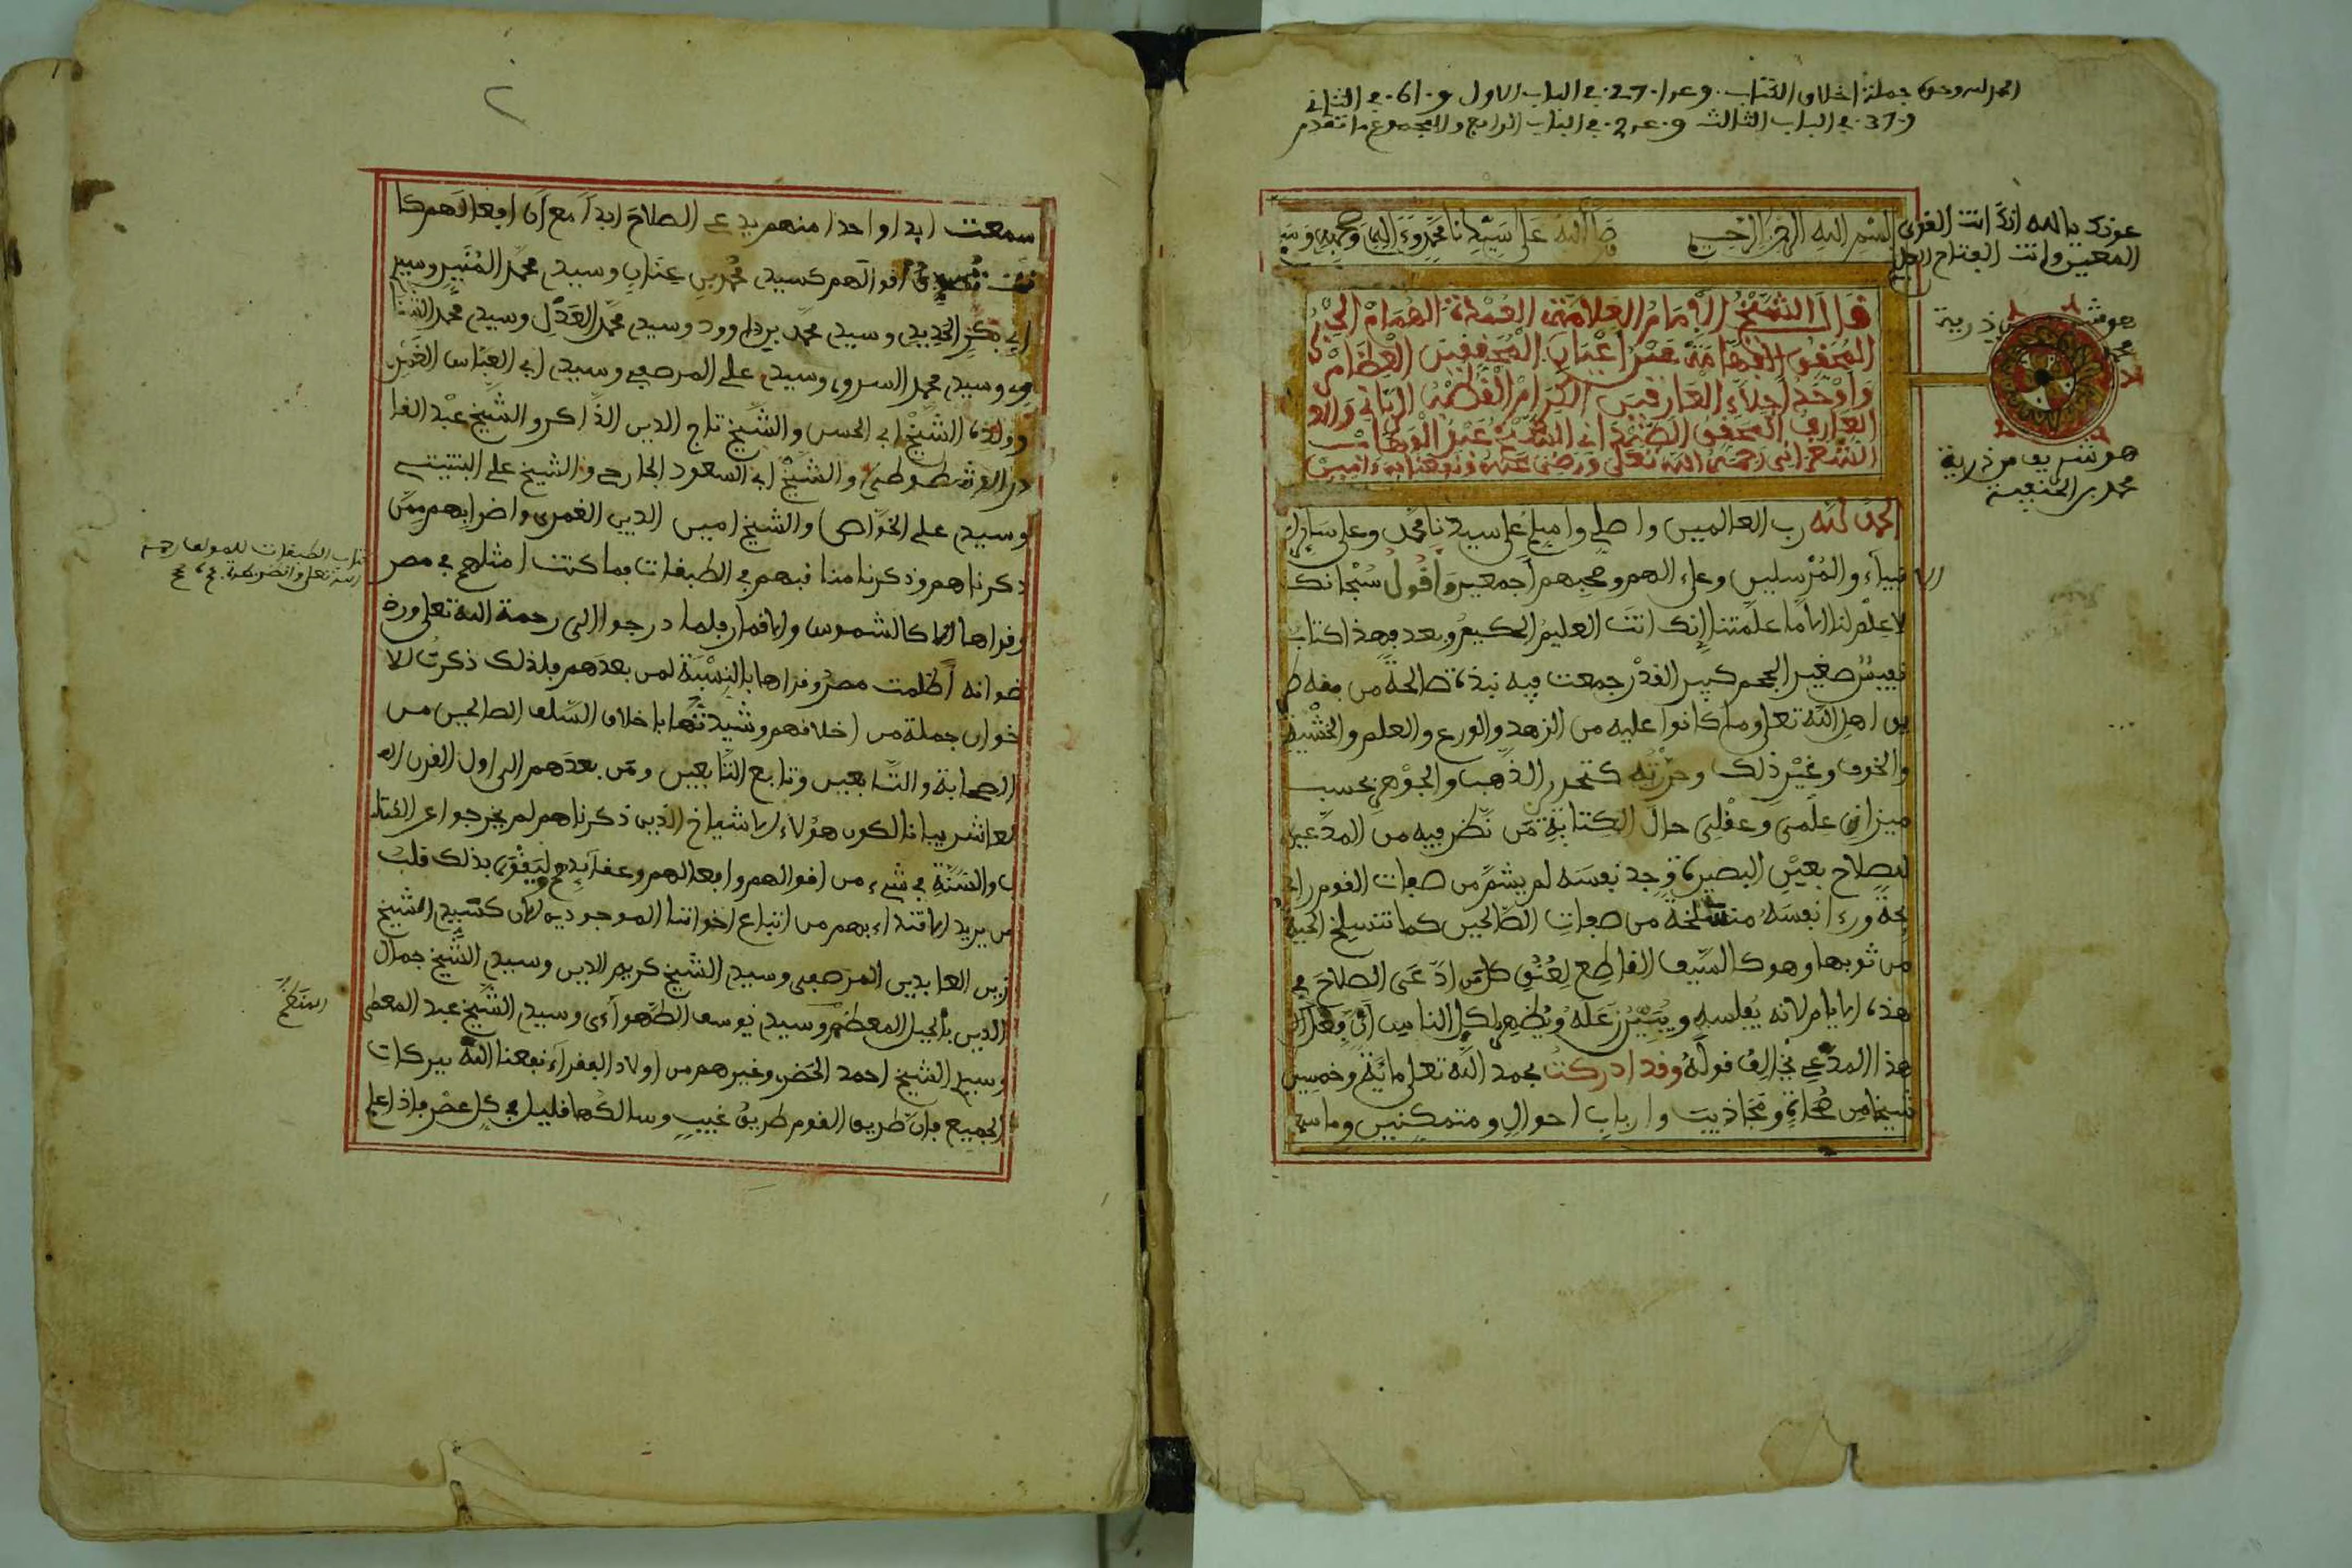 الحمد لله وحده جملة اخلاق الكتاب . وعدا . 27 . في الباب الاول و . 61 . في الثاني
و . 37 . في الباب الثالث و . عدد 2 . في الباب الرابع والمجموع ما تقدم
عونك يا الله انك انت القوي
المعين وانت الفتاح العليم
بسم الله الرحمن الرحيم صلى الله على سيدنا محمد وءاله وصحبه وسلم
قال الشيخ الامام العلامة العمدة الهمام الحبر
المحقق الفهامة عين اعيان المحققين العظام
واوحد اجلاء العارفين الكرام القطب الرباني والو
العارف المحقق الصمداني سيدي عبد الوهاب
الشعراني رحمه الله تعلى ورضي عنه ونفعنا به ءامين
هو شريف من ذرية
محمد
هو شريف من ذرية
محمد بن الحنفية
الحمد لله رب العالمين واصلي واسلم على سيدنا محمد وعلى ساير
الانبياء والمرسلين وعلى ءالهم وصحبهم اجمعين واقول سبحانك
لا علم لنا الا ما علمتنا إنك انت العليم الحكيم وبعد فهذا كتاب
نفيس صغير الحجم كبير القدر جمعت فيه نبذة صالحة من فقه طر
يق اهل الله تعلى وما كانوا عليه من الزهد والورع والعلم والخشية
والخوف وغير ذلك وحررته كتحرير الذهب والجوهر بحسب
ميزان علمي وعقلي حال الكتابة من نظر فيه من المدعين
للصلاح بعين البصيرة وجد نفسه لم يشم من صفات القوم راي
حة ورءا نفسه منسلخة من صفات الصالحين كما تنسلخ الحية
من ثوبها وهو كالسيف القاطع لعنق كل من ادعى الصلاح في
هذه الايام لانه يفلسه ويبين زغله ويظهر لكل الناس ان فعال
هذا المدعي تخالف قوله وقد ادركت بحمد الله تعلى ماية وخمسين
شيخا من صحاة ومجاذيب وارباب احوال ومتمكنين وما سم
٢
سمعت ابدا واحدا منهم يدعي الصلاح ابدا مع ان افعالهم كا
نت تصدق اقوالهم كسيدي محمد بن عنان وسيدي محمد المنير وسيدي
ابي بكر الحديدي وسيدي محمد بن داوود وسيدي محمد العدل وسيدي محمد الشنا
وي وسيدي محمد السروي وسيدي علي المرصفي وسيدي ابي العباس الغمري
وولده الشيخ ابي الحسن والشيخ تاج الدين الذاكر والشيخ عبد القا
در الدشطوطي والشيخ ابي السعود الجارحي والشيخ علي النبتيتي
وسيدي علي الخواص والشيخ امين الدين الغمري واضرابهم ممن
ذكرناهم وذكرنا مناقبهم في الطبقات فما كنت امثلهم في مصر
وقراها الا كالشموس والاقمار فلما درجوا الى رحمة الله تعلى ورض
ضوانه اظلمت مصر وقراها بالنسبة لمن بعدهم فلذلك ذكرت للا
خوان جملة من اخلاقهم وشيدتها باخلاق السلف الصالحين من
الصحابة والتابعين وتابع التابعين ومن بعدهم الى اول القرن ال
لعاشر بيانا لكون هؤلاء الاشياخ الذين ذكرناهم لم يخرجوا عن الكتا
ب والسنة في شيء من اقوالهم وافعالهم وعقايدهم وليقوى بذلك قلب
من يريد الاقتداء بهم من اتباع اخواننا الموجودين الان كسيدي الشيخ
زين العابدين المرصفي وسيدي الشيخ كريم الدين وسيدي الشيخ جمال
الدين بالجبل المعظم وسيدي يوسف الطهواءي وسيدي الشيخ عبد المعطي
وسيدي الشيخ احمد الخضر وغيرهم من اولاد الفقراء نفعنا الله ببركات
الجميع فان طريق القوم طريق غيب وسالكها قليل في كل عصر فاذا علم
كتاب الطبقات للمولف رحمه
الله تعلى